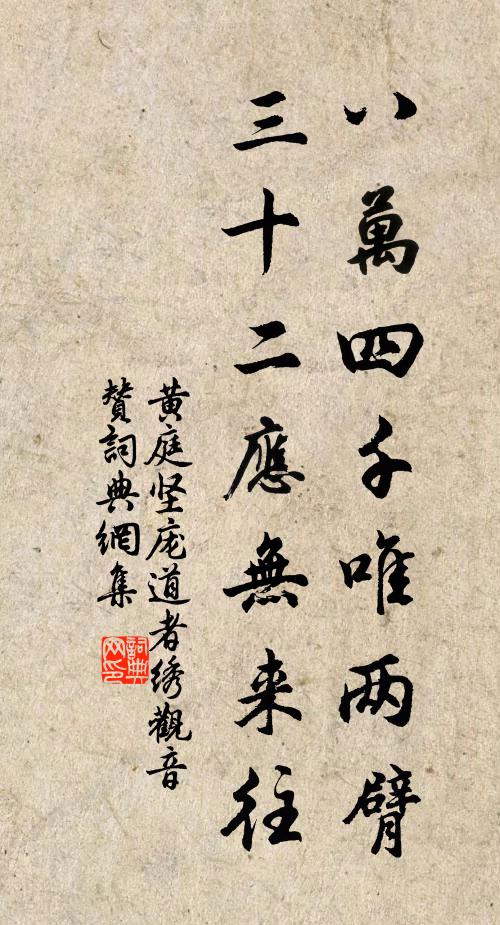 八萬四千唯两臂
三十二應無来往
黄庭坚庞道者绣觀音
贊詞典網集
詞典
网印